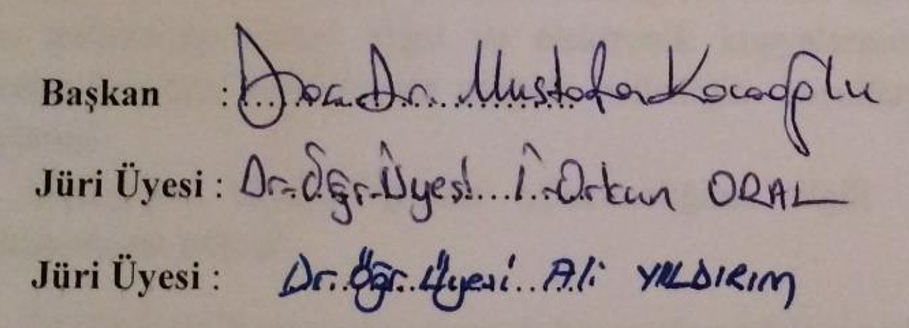 Başkan : Doç. Dr. Mustafa Kocaoğlu
Jüri Üyesi : Dr. Öğr. Üyesi İ. Orkun ORAL
Jüri Üyesi : Dr. Öğr. Üyesi Ali YILDIRIM